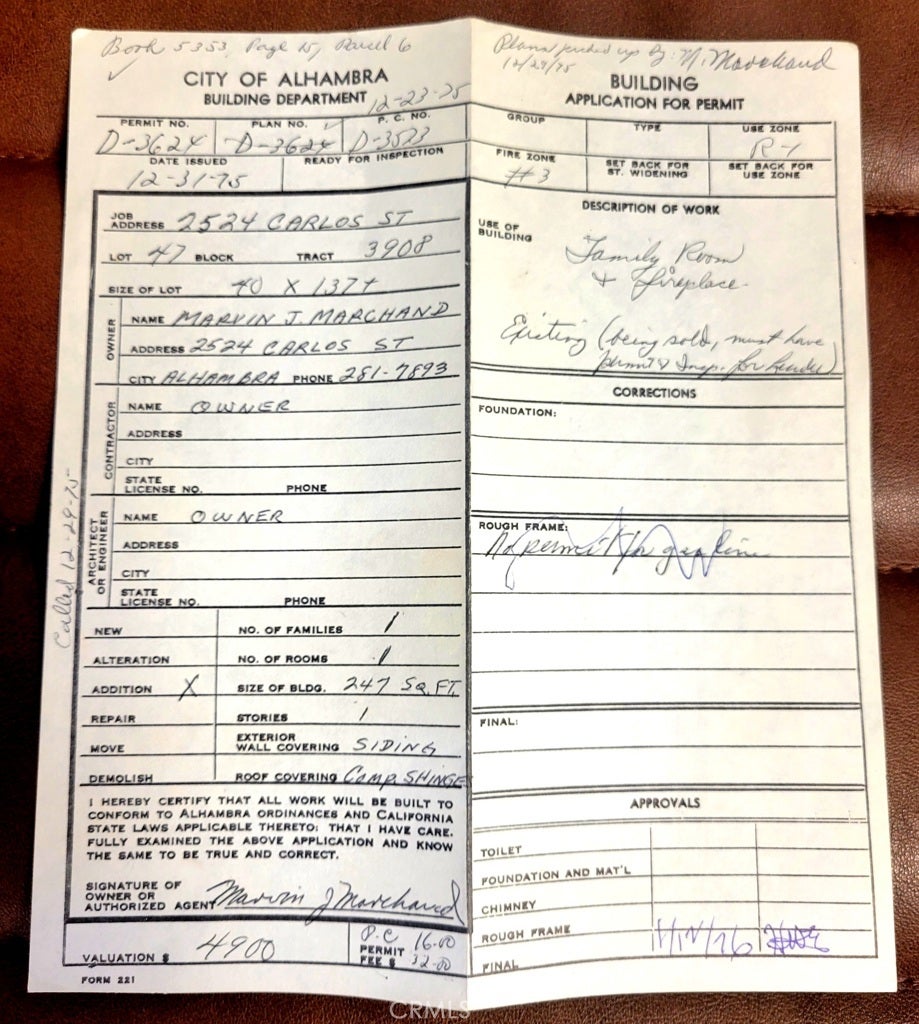 Book 5353, Page 15, Parcel 6
✓
CITY OF ALHAMBRA
BUILDING DEPARTMENT
12-23-75
PERMIT NO. PLAN NO. P. C. NO.
D-3624 D-3624 D-3523
DATE ISSUED READY FOR INSPECTION
12-31-75
JOB ADDRESS 2524 CARLOS ST
LOT 47 BLOCK TRACT 3908
SIZE OF LOT 40 X 137+
OWNER
NAME MARVIN J. MARCHAND
ADDRESS 2524 CARLOS ST
CITY ALHAMBRA PHONE 281-7893
CONTRACTOR
NAME OWNER
ADDRESS
CITY
STATE LICENSE NO. PHONE
Called 12-29-75
ARCHITECT OR ENGINEER
NAME OWNER
ADDRESS
CITY
STATE LICENSE NO. PHONE
NEW NO. OF FAMILIES 1
ALTERATION NO. OF ROOMS 1
ADDITION X SIZE OF BLDG. 247 SQ. FT.
REPAIR STORIES 1
MOVE EXTERIOR WALL COVERING SIDING
DEMOLISH ROOF COVERING COMP. SHINGE
I HEREBY CERTIFY THAT ALL WORK WILL BE BUILT TO
CONFORM TO ALHAMBRA ORDINANCES AND CALIFORNIA
STATE LAWS APPLICABLE THERETO: THAT I HAVE CARE.
FULLY EXAMINED THE ABOVE APPLICATION AND KNOW
THE SAME TO BE TRUE AND CORRECT.
SIGNATURE OF
OWNER OR
AUTHORIZED AGENT Marvin J Marchand
VALUATION $ 4900
P.C. 16.00
PERMIT FEE $ 32.00
FORM 221
Plans picked up by: M. Marchand
12/29/75
BUILDING
APPLICATION FOR PERMIT
GROUP TYPE USE ZONE
R-1
FIRE ZONE SET BACK FOR ST. WIDENING SET BACK FOR USE ZONE
#3
DESCRIPTION OF WORK
USE OF BUILDING
Family Room
& Fireplace
Existing (being sold, must have
permit & Insp. for lender)
CORRECTIONS
FOUNDATION:
ROUGH FRAME:
No permit for gas line
FINAL:
APPROVALS
TOILET
FOUNDATION AND MAT'L
CHIMNEY
ROUGH FRAME
FINAL
CRMLS